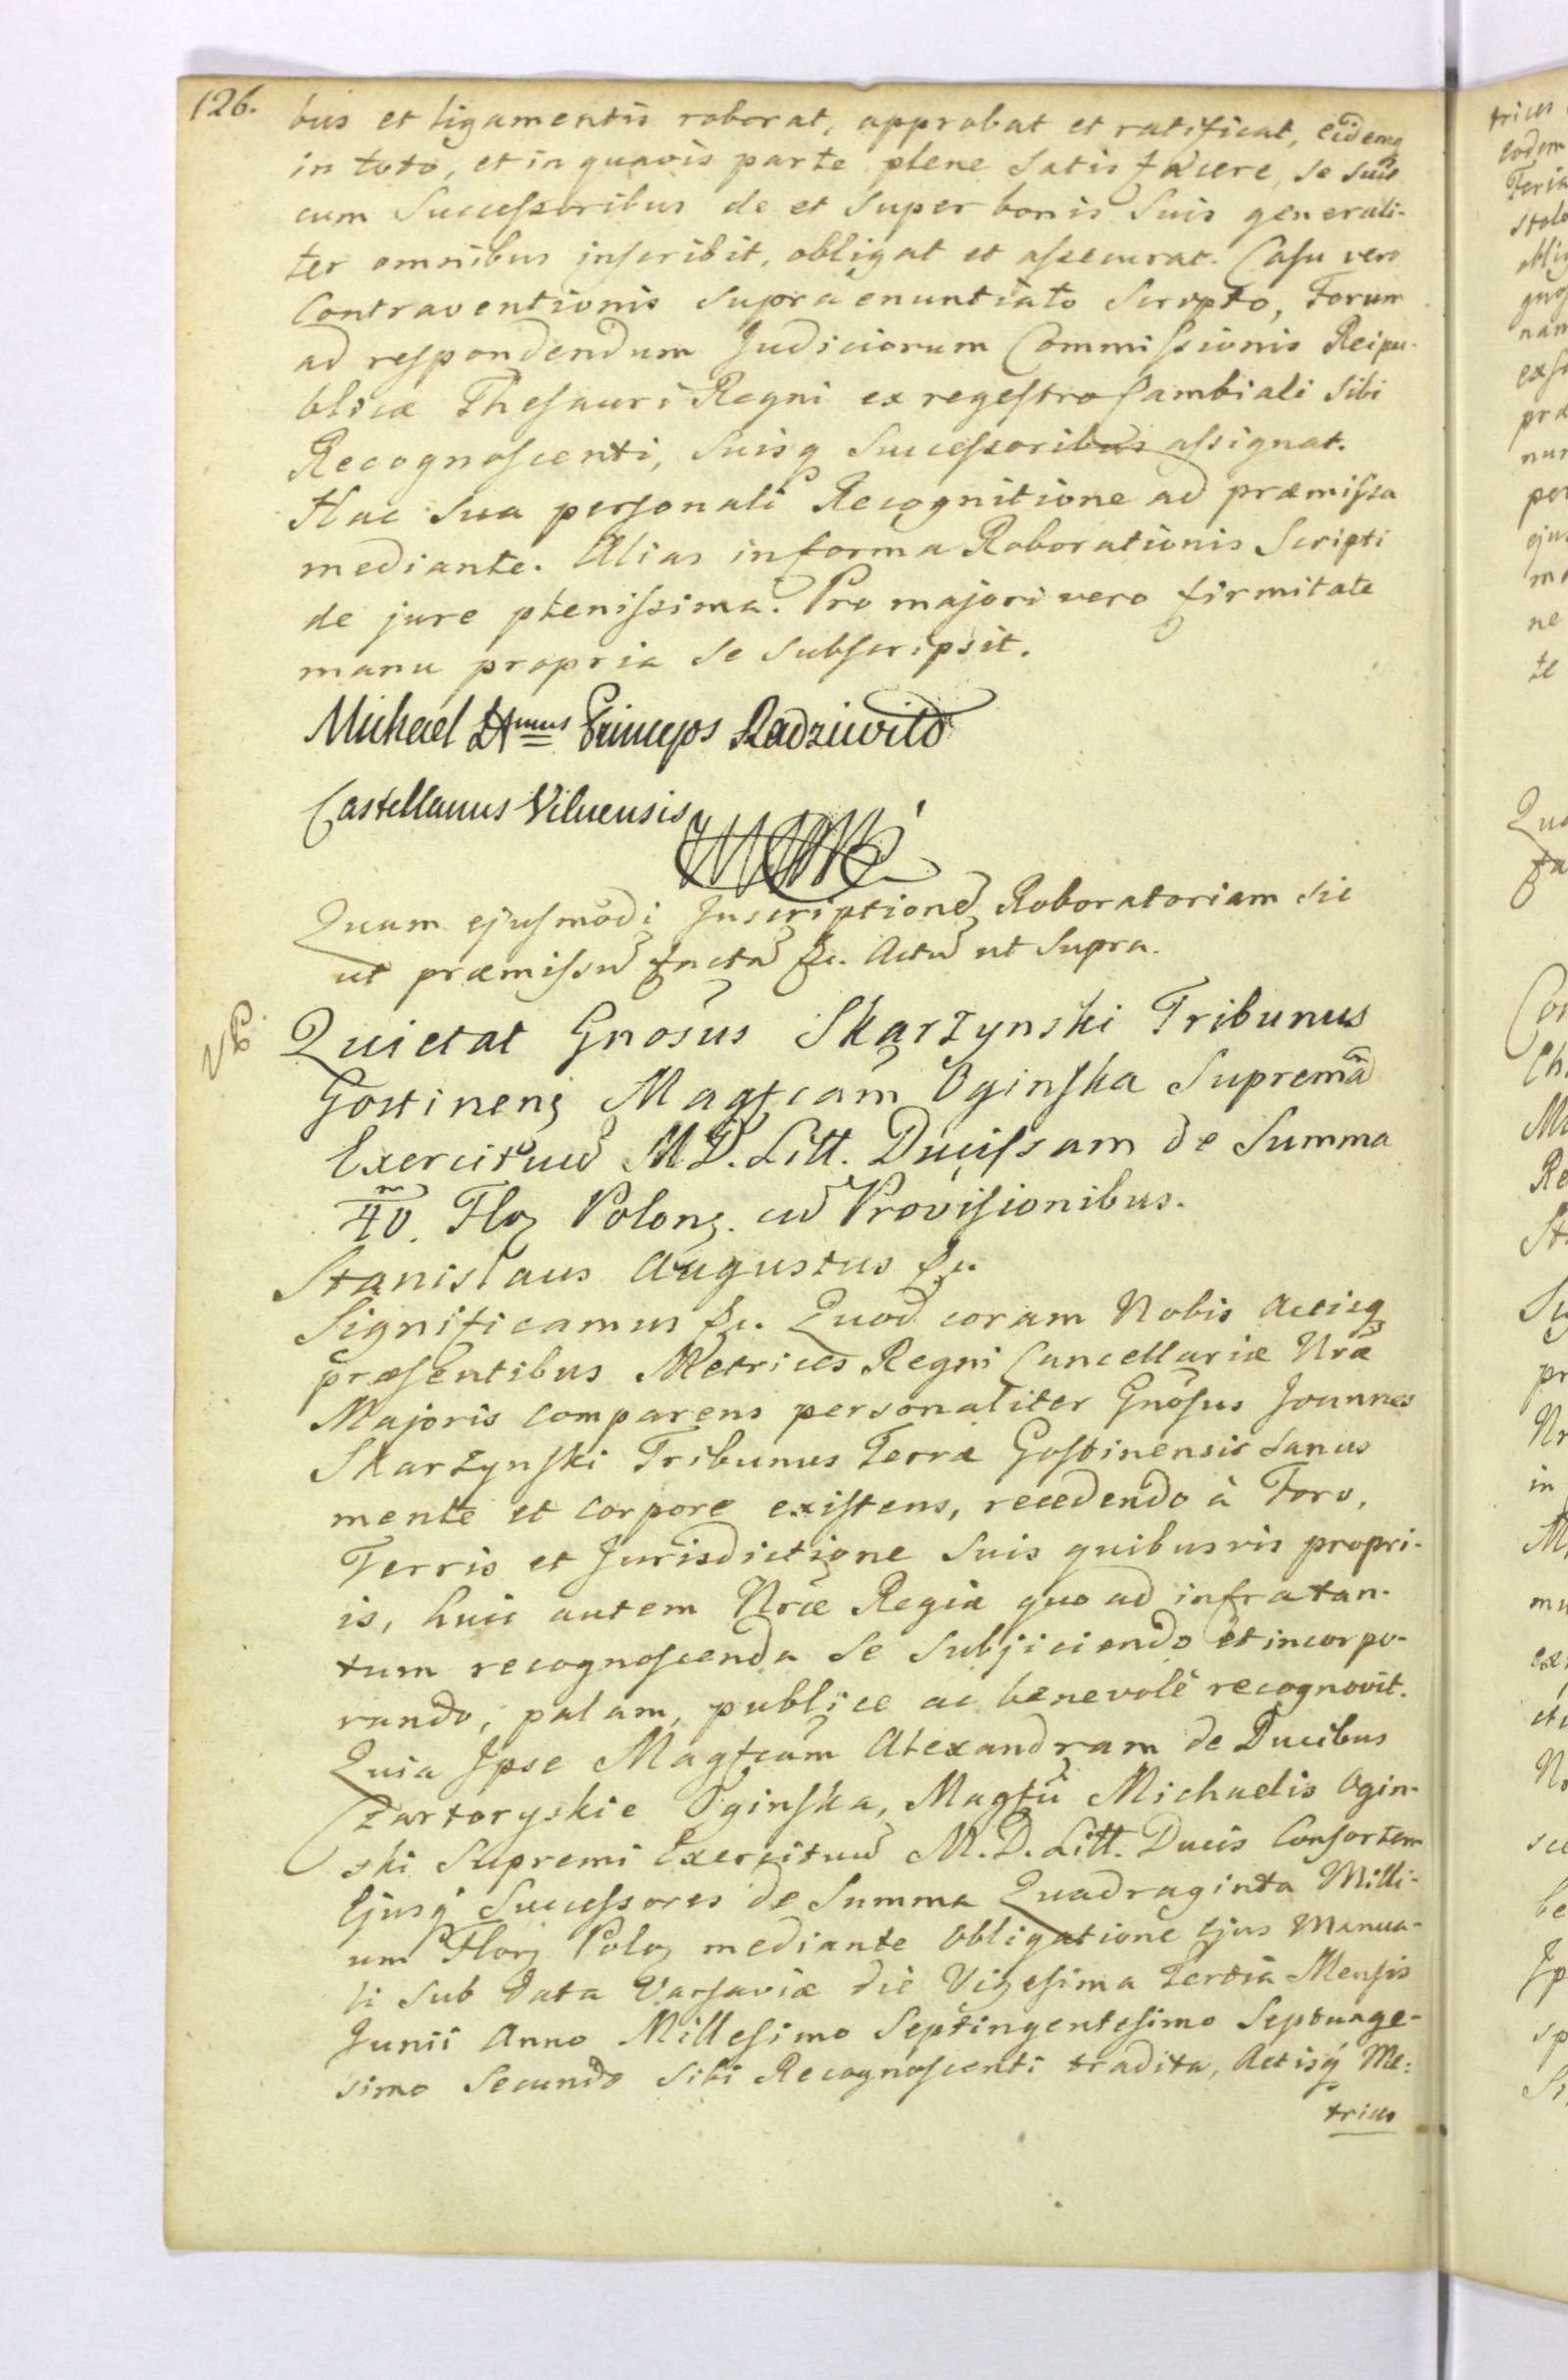 126.
bus et ligamentis roborat, approbat et ratificat, eidemq
in toto, et in quavis parte plene Satis facere, se suis
cum Successoribus de et super bonis suis generali-
ter omnibus inscribit, obligat et assecurat. Casu vero
Contraventionis supra enuntiato Scripto, Forum
ad respondendum Judiciorum Commissionis Reipu-
blicæ Thesauri Regni ex regestro Cambiali sibi
Recognoscenti, suisq Successoribus assignat.
Hac sua personali Recognitione ad præmissa
mediante. Alias in forma Roborationis Scripti
de jure plenissima. Pro majori vero firmitate
manu propria se subscripsit.
Michael Princeps Radziwiłł
Castellanus Vilnensis
Quam ejusmodi Inscriptionē Roboratoriam sic
ut præmissū factā &c. Actū ut Supra.
Quietat Gnosus Skarzynski Tribunus
Gostinens Magfcam Oginska Supremā
Exercituū M.D. Litt. Ducissam de Summa
m/40. Flor Polon. cū Provisionibus.
Stanislaus Augustus &c.
Significamus &c. Quod coram Nobis Actisq
præsentibus Metrices Regni Cancellariæ Nræ
Majoris comparens personaliter Gnosus Joannes
Skarzynski Tribunus Terræ Gostinensis sanus
mente et corpore existens, recedendo à Foro,
Terris et Jurisdictione suis quibusvis propri-
is, huic autem Nræ Regiæ quo ad infra tan-
tum recognoscenda se subjiciendo et incorpo-
rando, palam, publice ac benevolè recognovit.
Quia Ipse Magfcam Alexandram de Ducibus
Czartoryskie Oginska, Magfci Michaelis Ogin-
ski Supremi Exercituū M.D. Litt. Ducis Consortem
Ejusq Successores de Summa Quadraginta Milli-
um Flor Polo mediante Obligatione Ejus Manua-
li sub data Varsaviæ die Vigesima tertia Mensis
Junii Anno Millesimo Septingentesimo Septuage-
simo Secundo sibi Recognoscenti tradita, Actisq Me:
trices